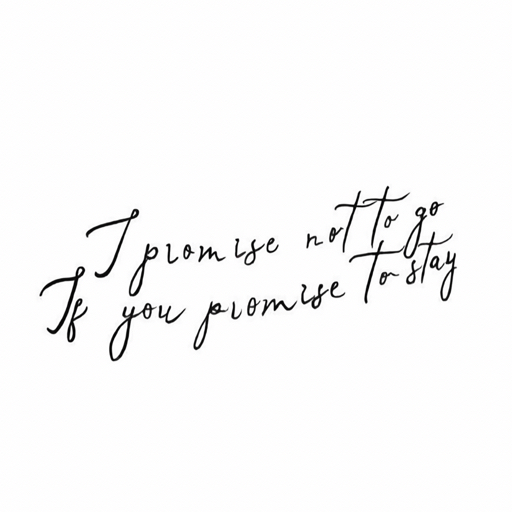 I promise not to go
If you promise to stay